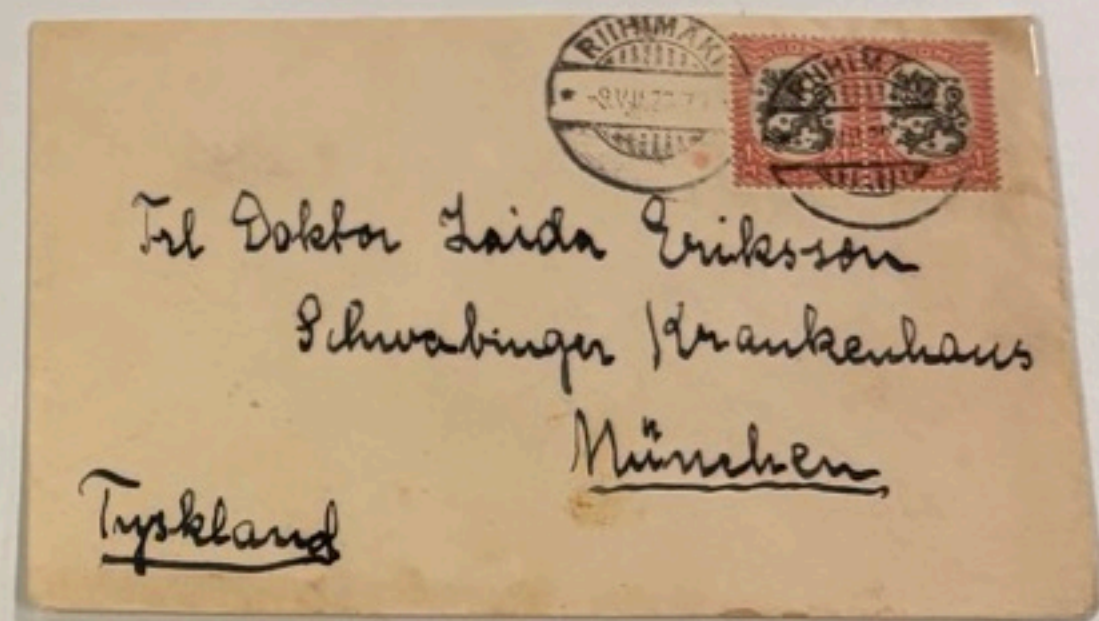 RIIHIMÄKI
RIIHIMÄKI
Frl Doktor Zaida Eriksson
Schwabinger Krankenhaus
München
Tyskland